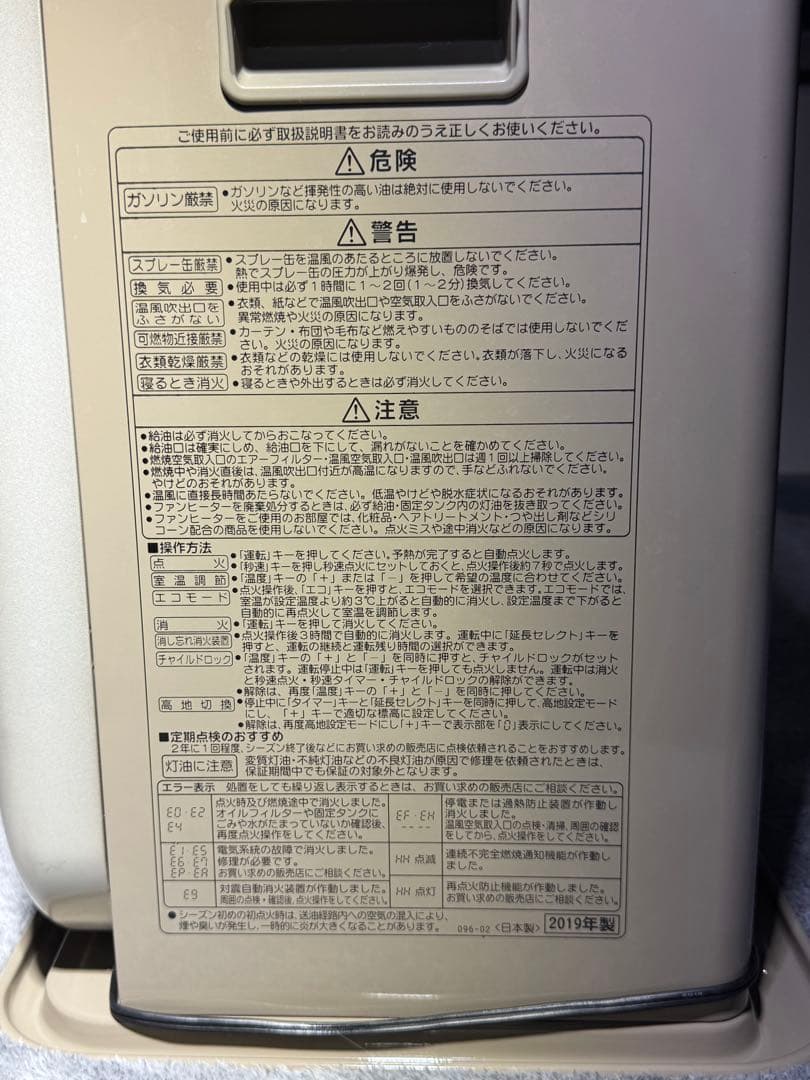 ご使用前に必ず取扱説明書をお読みのうえ正しくお使いください。
⚠危険
ガソリン厳禁
●ガソリンなど揮発性の高い油は絶対に使用しないでください。
火災の原因になります。
⚠警告
スプレー缶厳禁
●スプレー缶を温風のあたるところに放置しないでください。
熱でスプレー缶の圧力が上がり爆発し、危険です。
換気必要
●使用中は必ず1時間に1〜2回(1〜2分)換気してください。
温風吹出口を
ふさがない
●衣類、紙などで温風吹出口や空気取入口をふさがないでください。
異常燃焼や火災の原因になります。
可燃物近接厳禁
●カーテン・布団や毛布など燃えやすいもののそばでは使用しないでくだ
さい。火災の原因になります。
衣類乾燥厳禁
●衣類などの乾燥には使用しないでください。衣類が落下し、火災になる
おそれがあります。
寝るとき消火
●寝るときや外出するときは必ず消火してください。
⚠注意
●給油は必ず消火してからおこなってください。
●給油口は確実にしめ、給油口を下にして、漏れがないことを確かめてください。
●燃焼空気取入口のエアーフィルター・温風空気取入口・温風吹出口は週1回以上掃除してください。
●燃焼中や消火直後は、温風吹出口付近が高温になりますので、手などふれないでください。
やけどのおそれがあります。
●温風に直接長時間あたらないでください。低温やけどや脱水症状になるおそれがあります。
●ファンヒーターを廃棄処分するときは、必ず給油・固定タンク内の灯油を抜き取ってください。
●ファンヒーターをご使用のお部屋では、化粧品・ヘアトリートメント・つや出し剤などシリ
コーン配合の商品を使用しないでください。点火ミスや途中消火などの原因になります。
■操作方法
点火
●「運転」キーを押してください。予熱が完了すると自動点火します。
●「秒速」キーを押し秒速点火にセットしておくと、点火操作後約7秒で点火します。
室温調節
●「温度」キーの「+」または「−」を押して希望の温度に合わせてください。
エコモード
●点火操作後、「エコ」キーを押すと、エコモードを選択できます。エコモードでは、
室温が設定温度より約3℃上がると自動的に消火し、設定温度まで下がると
自動的に再点火して室温を調節します。
消火
●「運転」キーを押して消火してください。
消し忘れ消火装置
●点火操作後3時間で自動的に消火します。運転中に「延長セレクト」キーを
押すと、運転の継続と運転残り時間の選択ができます。
チャイルドロック
●「温度」キーの「+」と「−」を同時に押すと、チャイルドロックがセット
されます。運転停止中は「運転」キーを押しても点火しません。運転中は消火
と秒速点火・秒速タイマー・チャイルドロックの解除ができます。
●解除は、再度「温度」キーの「+」と「−」を同時に押してください。
高地切換
●停止中に「タイマー」キーと「延長セレクト」キーを同時に押して、高地設定モード
にし、「+」キーで適切な標高に設定してください。
●解除は、再度高地設定モードにし「+」キーで表示部を「0」表示にしてください。
■定期点検のおすすめ
2年に1回程度、シーズン終了後などにお買い求めの販売店に点検依頼されることをおすすめします。
灯油に注意
変質灯油・不純灯油などの不良灯油が原因で修理を依頼されたときは、
保証期間中でも保証の対象外となります。
エラー表示 処置をしても繰り返し表示するときは、お買い求めの販売店にご相談ください。
E0・E2
E4
点火時及び燃焼途中で消火しました。
オイルフィルターや固定タンクに
ごみや水がたまっていないか確認後、
再度点火操作をしてください。
EF・EH
----
停電または過熱防止装置が作動し
消火しました。
温風空気取入口の点検・清掃、周囲の確認
をしてから、点火操作をしてください。
E1・E5
E6・E7
EP・EA
電気系統の故障で消火しました。
修理が必要です。
お買い求めの販売店にご相談ください。
HH 点滅
連続不完全燃焼通知機能が作動し
ました。
E9
対震自動消火装置が作動しました。
周囲の点検・確認後、点火操作をしてください。
HH 点灯
再点火防止機能が作動しました。
お買い求めの販売店にご相談ください。
●シーズン初めの初点火時は、送油経路内への空気の混入により、
煙や臭いが発生し、一時的に炎が大きくなることがあります。
096-02 <日本製> 2019年製